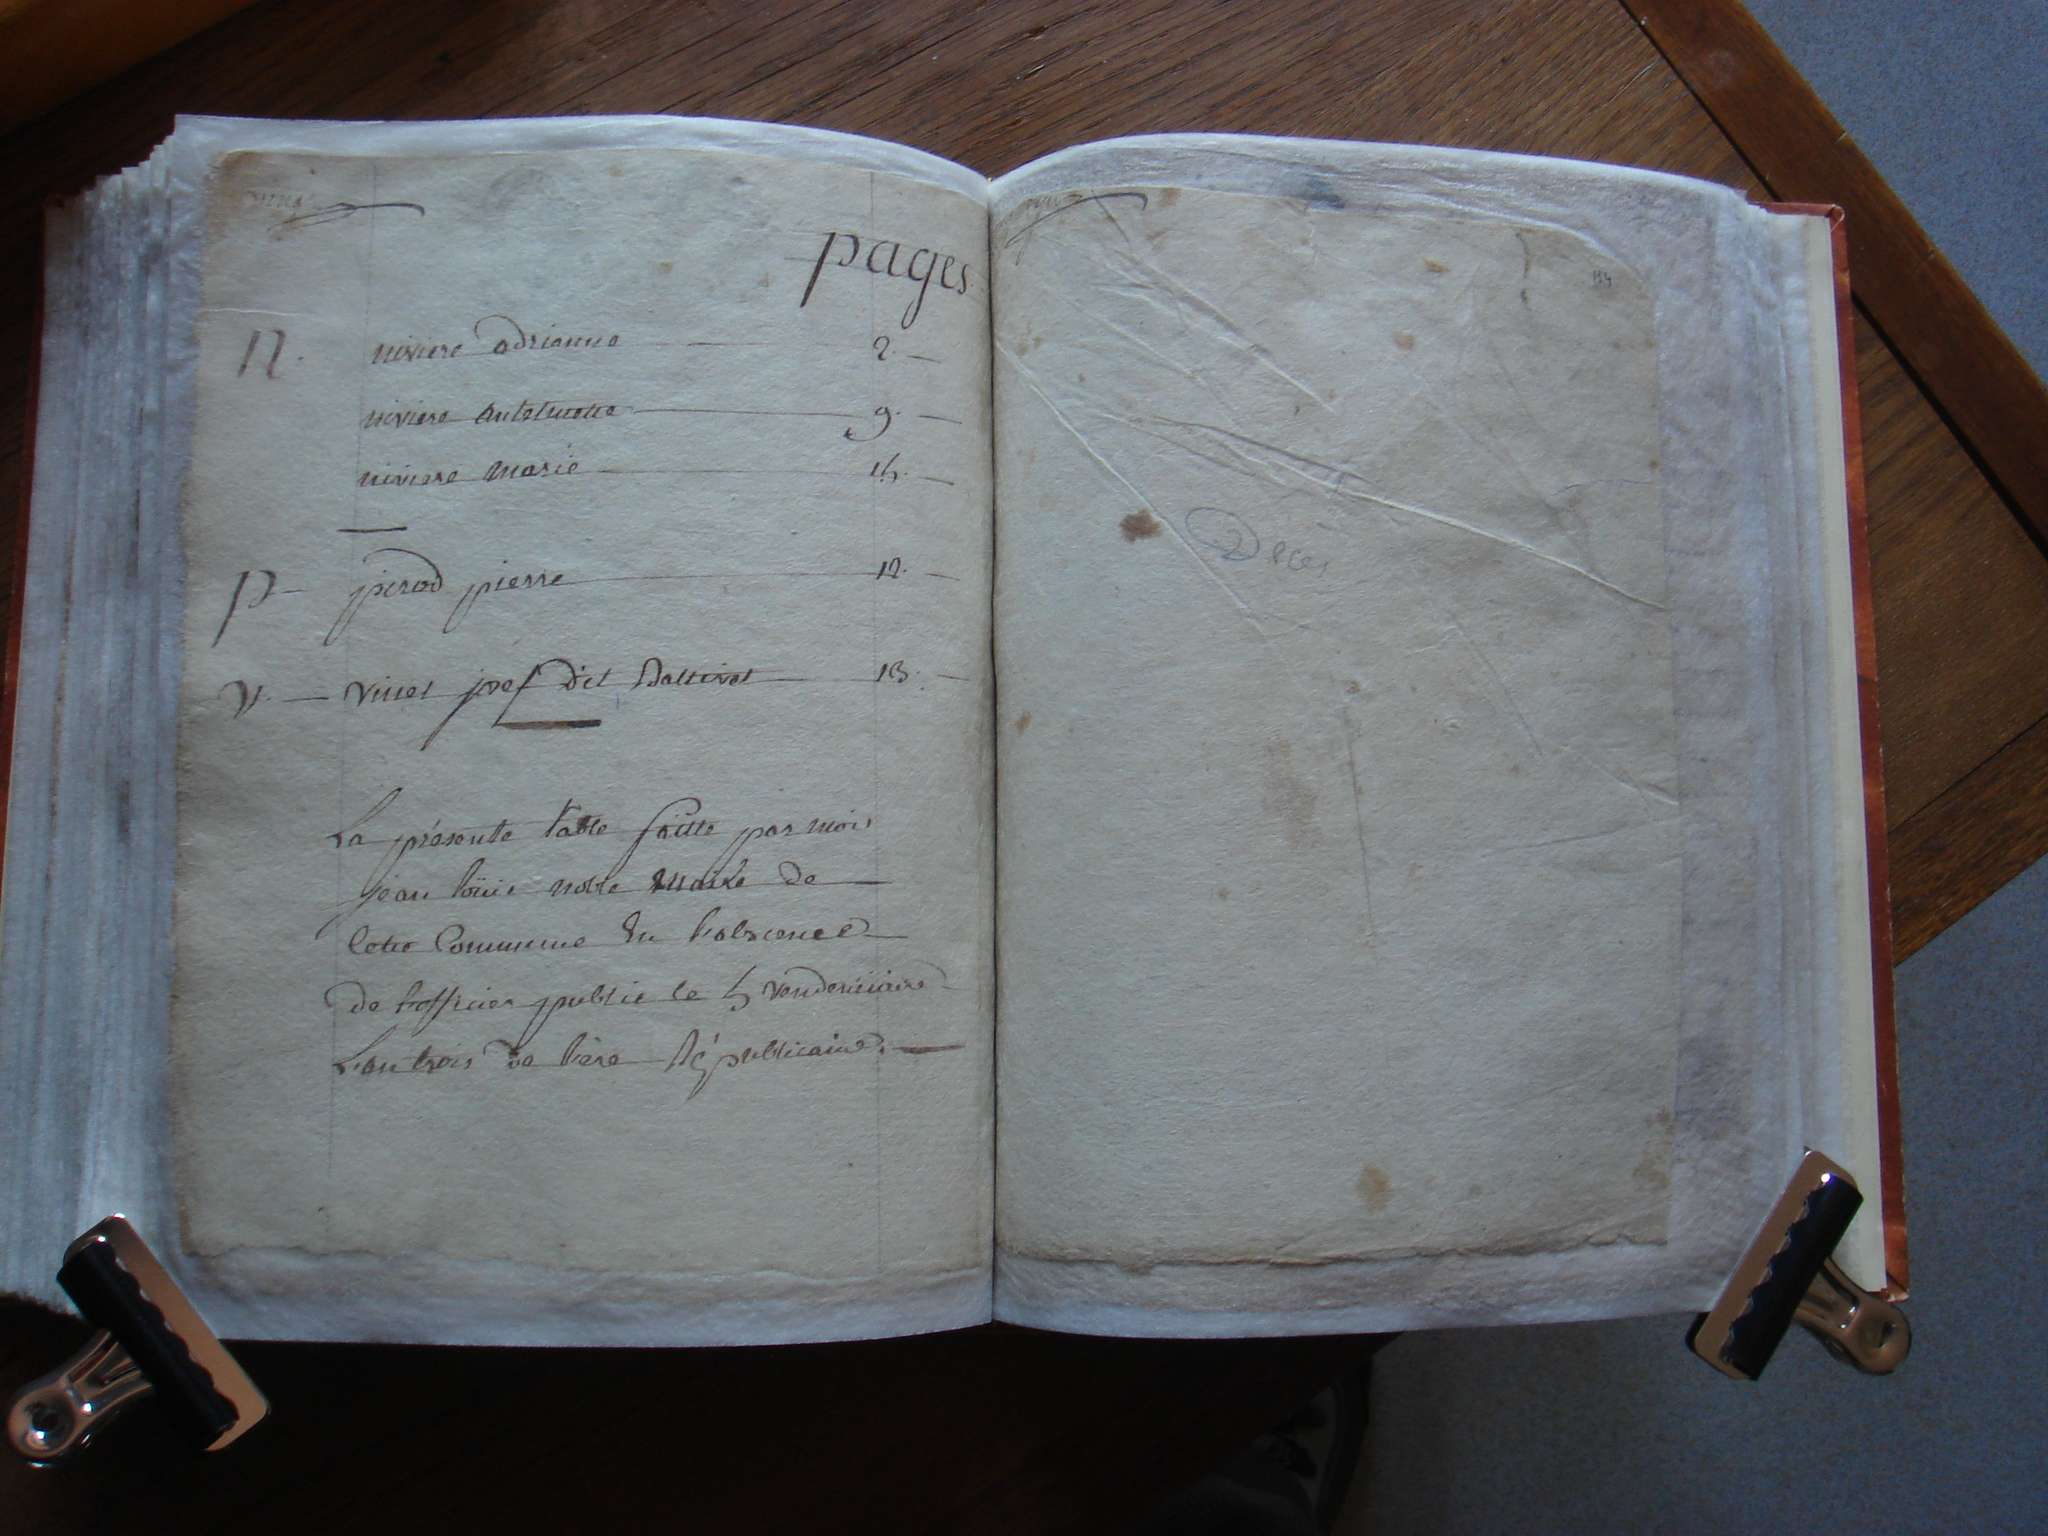 pages
N. niviere adrianne 2.
niviere antoinette 9.
niviere marie
P perod pierre 12.
V. vinet jos.f dit 13.
La présente table faitte par moi
jean loüis notre maire de
cette Commune En l'absence
de l'officier public le 5 vendemiaire
L'an trois de l'ère Républicaine.
Décès
154